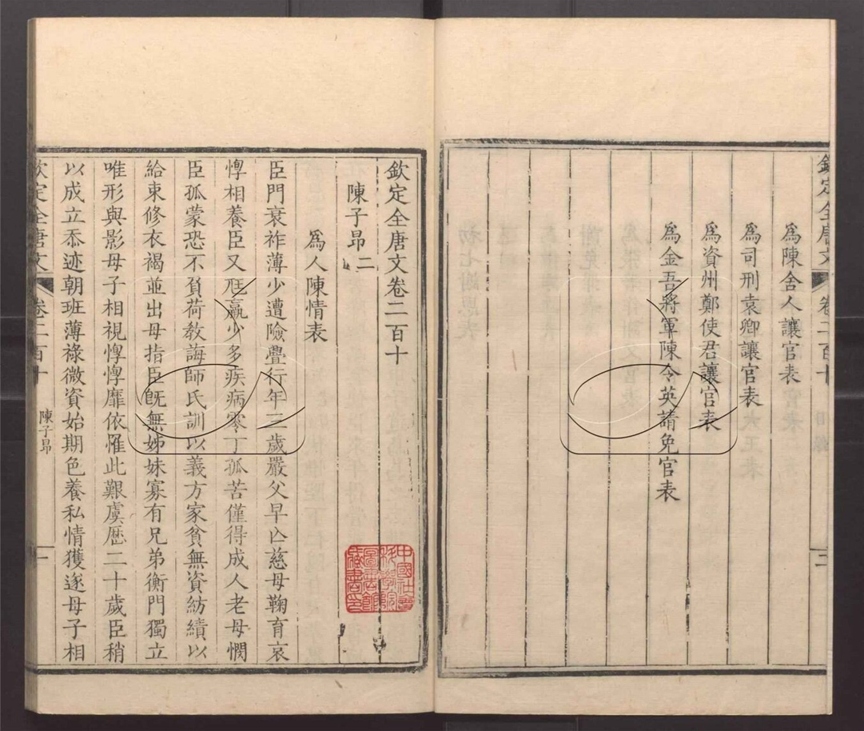 欽定全唐文 卷二百十
爲陳舍人讓官表
爲司刑袁卿讓官表
爲資州鄭使君讓官表
爲金吾將軍陳令英請免官表
欽定全唐文卷二百十
陳子昂二
爲人陳情表
臣門衰祚薄少遭險舋行年三歲嚴父早亾慈母鞠育哀
惸相養臣又尫羸少多疾病零丁孤苦僅得成人老母憫
臣孤蒙恐不負荷教誨師氏訓以義方家貧無資紡績以
給束修衣褐並出母指臣旣無姊妹寡有兄弟衡門獨立
唯形與影母子相視惸惸靡依罹此艱虞歷二十歲臣稍
以成立忝迹朝班薄祿微資始期色養私情獲遂母子相
欽定全唐文 卷二百十 陳子昂 一